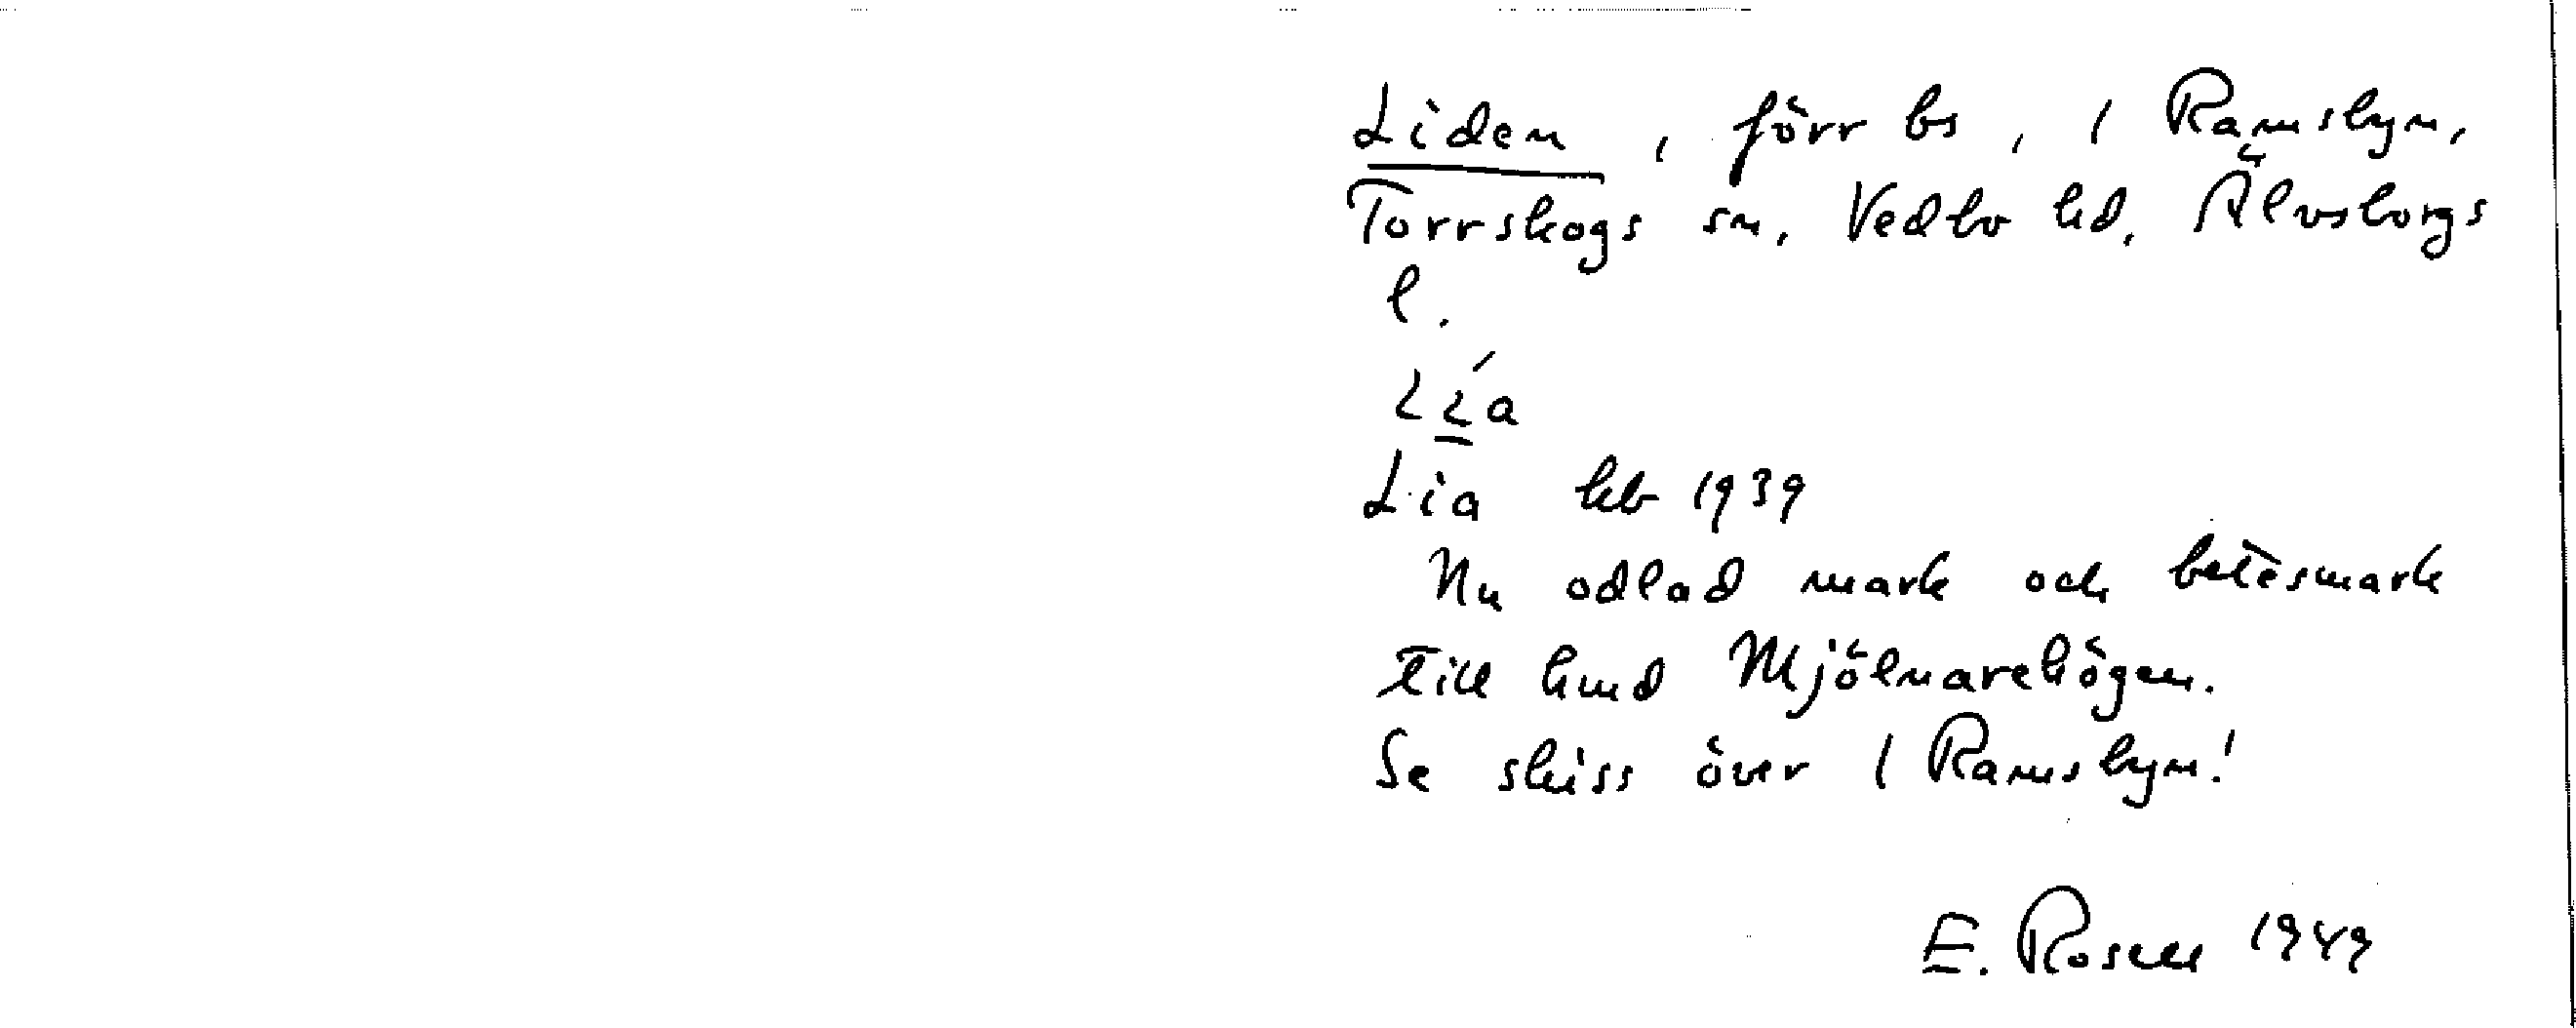 Liden, förr bs, 1 Ramsbyn,
Torrskogs sn, Vedbo hd, Älvsborgs
l.
Lia hb 1939
Nu odlad mark och betesmark
till hmd Mjölnarehögen.
Se skiss över 1 Ramsbyn!
E. Rosell 1949